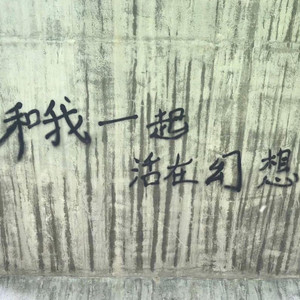 和我一起
活在幻想